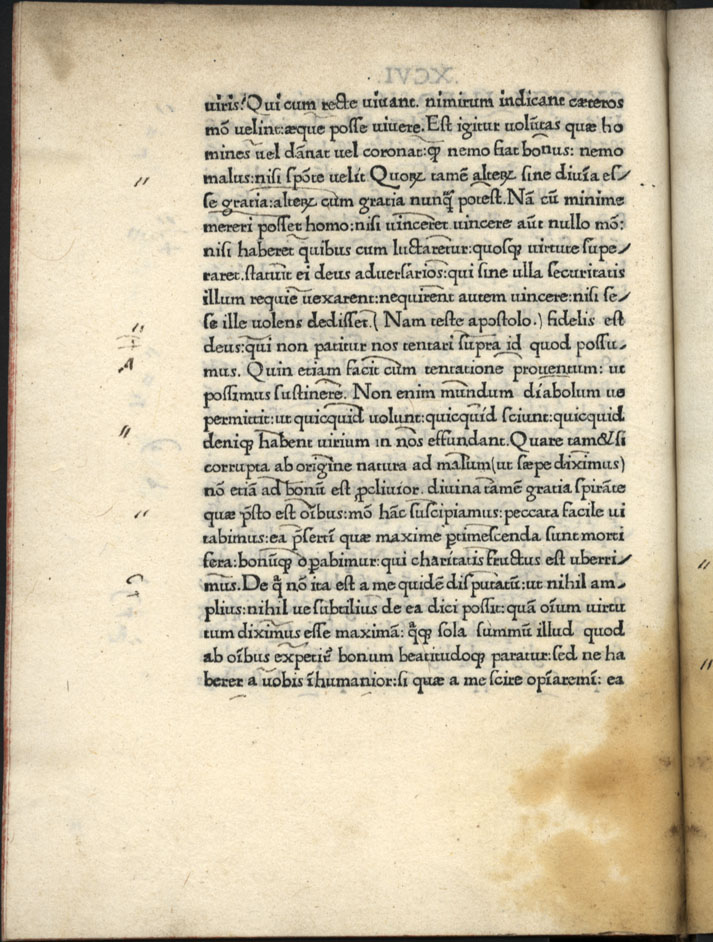 uiris? Qui cum recte uiuant. nimirum indicant cæteros
mō uelint: æque posse uiuere. Est igitur volūtas quæ ho
mines uel dānat uel coronat: qꝫ nemo fiat bonus: nemo
malus: nisi spōte uelit Quoꝝ tamē alteꝝ sine diuīa es⸗
se gratia: alteꝝ cum gratia nunq̄ potest. Nā cū minime
mereri posset homo: nisi uinceret uincere aūt nullo mō:
nisi haberet quibus cum luctaretur: quosqꝫ uirtute supe⸗
raret. statuit ei deus aduersarios: qui sine ulla securitatis
illum requie uexarent: nequirent autem uincere: nisi se⸗
se ille uolens dedisset. ( Nam teste apostolo. ) fidelis est
deus: qui non patitur nos tentari supra id quod possu⸗
mus. Quin etiam facit cum tentatione prouentum: ut
possimus sustinere. Non enim mundum díabolum ue
permittit: ut quicquid uolunt: quicquíd sciunt: quicquid
deniqꝫ habent uirium in nos effundant. Quare tam&si
corrupta ab origine natura ad malum (ut sæpe diximus)
nō etiā ad bonū est ꝓcliuior. diuina tamē gratia spirāte
quæ p̄sto est oībus: mō hāc suscipiamus: peccata facile ui
tabimus: ea p̄sertī quæ maxime ꝑtimescenda sunt morti
fera: bonūqꝫ opabimur: qui charitatis fructus est uberri⸗
mus. De q̄ nō ita est a me quidē disputatū: ut nihil am⸗
plius: nihil ue subtilius de ea dici possit: quā oīum uirtu
tum diximus esse maximā: q̄qꝫ sola summū illud quod
ab oībus expetit᷑ bonum beatitudoqꝫ paratur: sed ne ha
berer a uobis īhumanior: si quæ a me scire opīaremī: ea